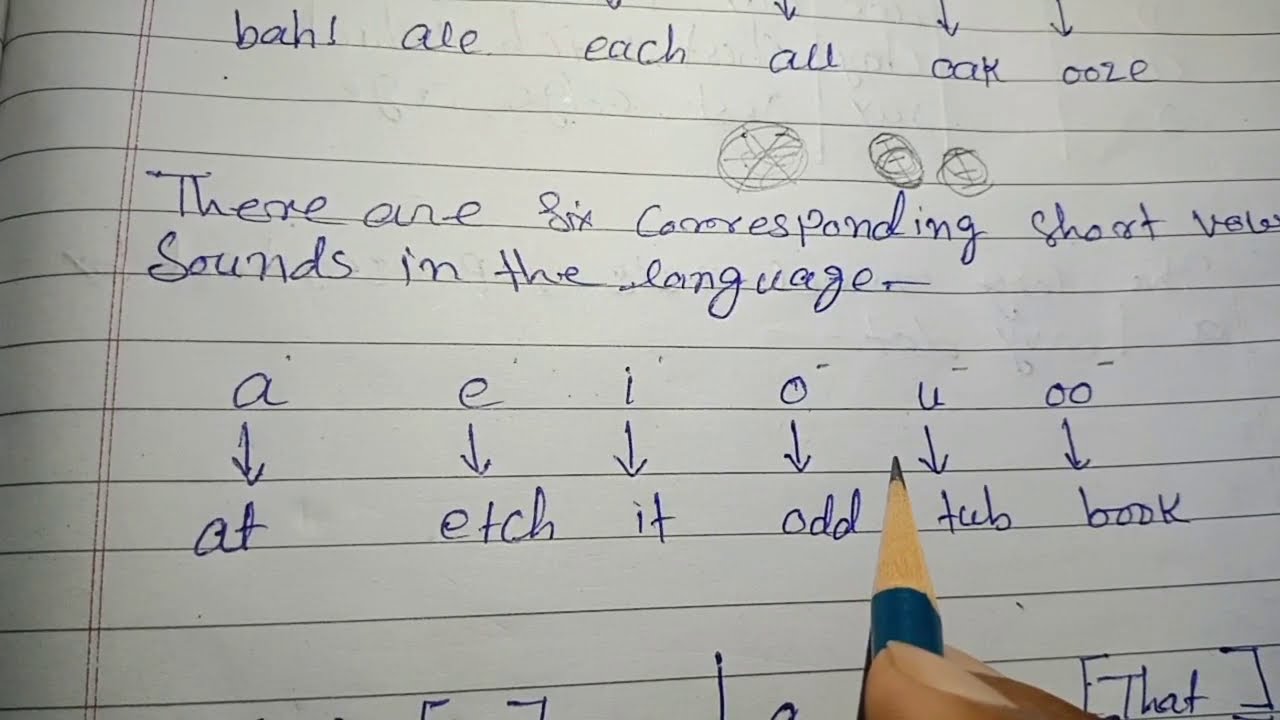 bah! ale each all oak ooze
There are six Corresponding Short
Sounds in the language-
a e i o u oo
at etch it odd tub book
[That]